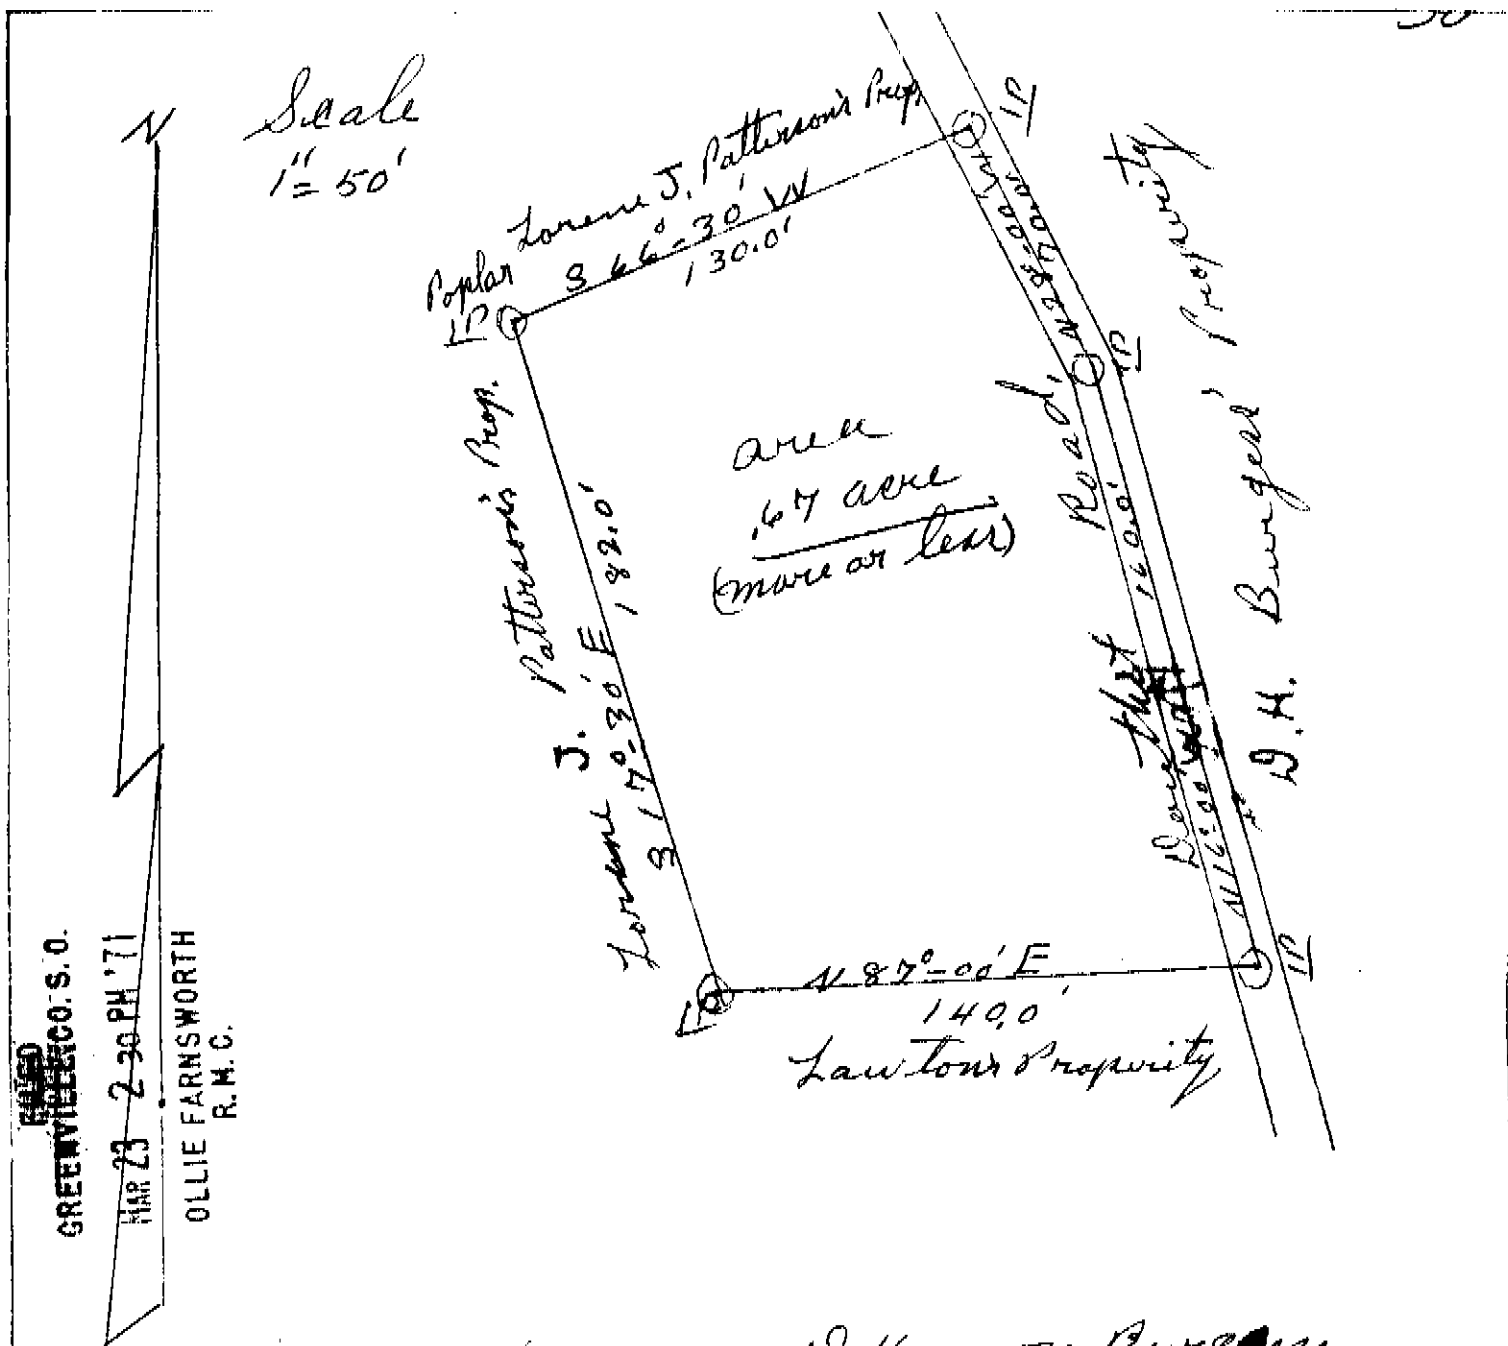 N
Scale
1" = 50'
Lorene J. Patterson's Prop.
S 66°-30' W
130.0'
Poplar
IP
IP
N 28°-00' W
70.0'
IP
Lorene J. Patterson's Prop.
S 17°-30' E 182.0'
area
.67 acre
(more or less)
Dirt Road
N 16°-00' W 160.0'
D. H. Burgess' Propurity
IP
IP
N 87°-00' E
140.0'
Lawton's Propurity
FILED
GREENVILLE CO. S. C.
MAR 23 2 30 PM '71
OLLIE FARNSWORTH
R. M. C.